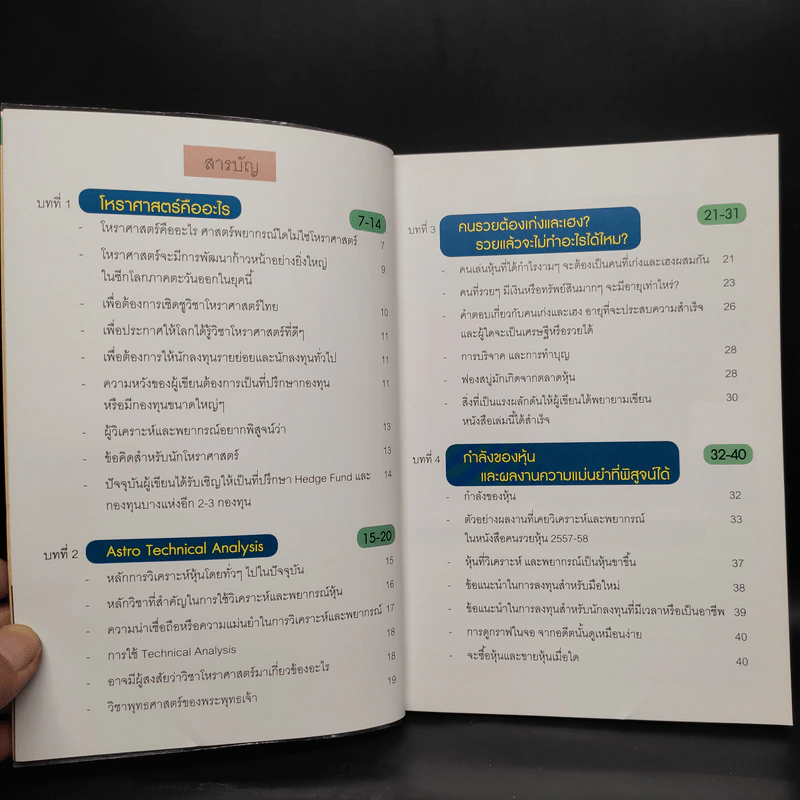 สารบัญ
บทที่ 1 โหราศาสตร์คืออะไร 7-14
- โหราศาสตร์คืออะไร ศาสตร์พยากรณ์ใดไม่ใช่โหราศาสตร์ 7
- โหราศาสตร์จะมีการพัฒนาก้าวหน้าอย่างยิ่งใหญ่ 9
ในซีกโลกภาคตะวันออกในยุคนี้
- เพื่อต้องการเชิดชูวิชาโหราศาสตร์ไทย 10
- เพื่อประกาศให้โลกได้รู้วิชาโหราศาสตร์ที่ดีๆ 11
- เพื่อต้องการให้นักลงทุนรายย่อยและนักลงทุนทั่วไป 11
- ความหวังของผู้เขียนต้องการเป็นที่ปรึกษากองทุน 11
หรือมีกองทุนขนาดใหญ่ๆ
- ผู้วิเคราะห์และพยากรณ์อยากพิสูจน์ว่า 13
- ข้อคิดสำหรับนักโหราศาสตร์ 13
- ปัจจุบันผู้เขียนได้รับเชิญให้เป็นที่ปรึกษา Hedge Fund และ 14
กองทุนบางแห่งอีก 2-3 กองทุน
บทที่ 2 Astro Technical Analysis 15-20
- หลักการวิเคราะห์หุ้นโดยทั่วๆ ไปในปัจจุบัน 15
- หลักวิชาที่สำคัญในการใช้วิเคราะห์และพยากรณ์หุ้น 16
- ความน่าเชื่อถือหรือความแม่นยำในการวิเคราะห์และพยากรณ์ 17
- การใช้ Technical Analysis 18
- อาจมีผู้สงสัยว่าวิชาโหราศาสตร์มาเกี่ยวข้องอะไร 18
- วิชาพุทธศาสตร์ของพระพุทธเจ้า 19
บทที่ 3 คนรวยต้องเก่งและเฮง? 21-31
รวยแล้วจะไม่ทำอะไรได้ไหม?
- คนเล่นหุ้นที่ได้กำไรงามๆ จะต้องเป็นคนที่เก่งและเฮงผสมกัน 21
- คนที่รวยๆ มีเงินหรือทรัพย์สินมากๆ จะมีอายุเท่าไหร่? 23
- คำตอบเกี่ยวกับคนเก่งและเฮง อายุที่จะประสบความสำเร็จ 26
และผู้ใดจะเป็นเศรษฐีหรือรวยได้
- การบริจาค และการทำบุญ 28
- ฟองสบู่มักเกิดจากตลาดหุ้น 28
- สิ่งที่เป็นแรงผลักดันให้ผู้เขียนได้พยายามเขียน 30
หนังสือเล่มนี้ได้สำเร็จ
บทที่ 4 กำลังของหุ้น 32-40
และผลงานความแม่นยำที่พิสูจน์ได้
- กำลังของหุ้น 32
- ตัวอย่างผลงานที่เคยวิเคราะห์และพยากรณ์ 33
ในหนังสือคนรวยหุ้น 2557-58
- หุ้นที่วิเคราะห์ และพยากรณ์เป็นหุ้นขาขึ้น 37
- ข้อแนะนำในการลงทุนสำหรับมือใหม่ 38
- ข้อแนะนำในการลงทุนสำหรับนักลงทุนที่มีเวลาหรือเป็นอาชีพ 39
- การดูกราฟในจอ จากอดีตนั้นดูเหมือนง่าย 40
- จะซื้อหุ้นและขายหุ้นเมื่อใด 40